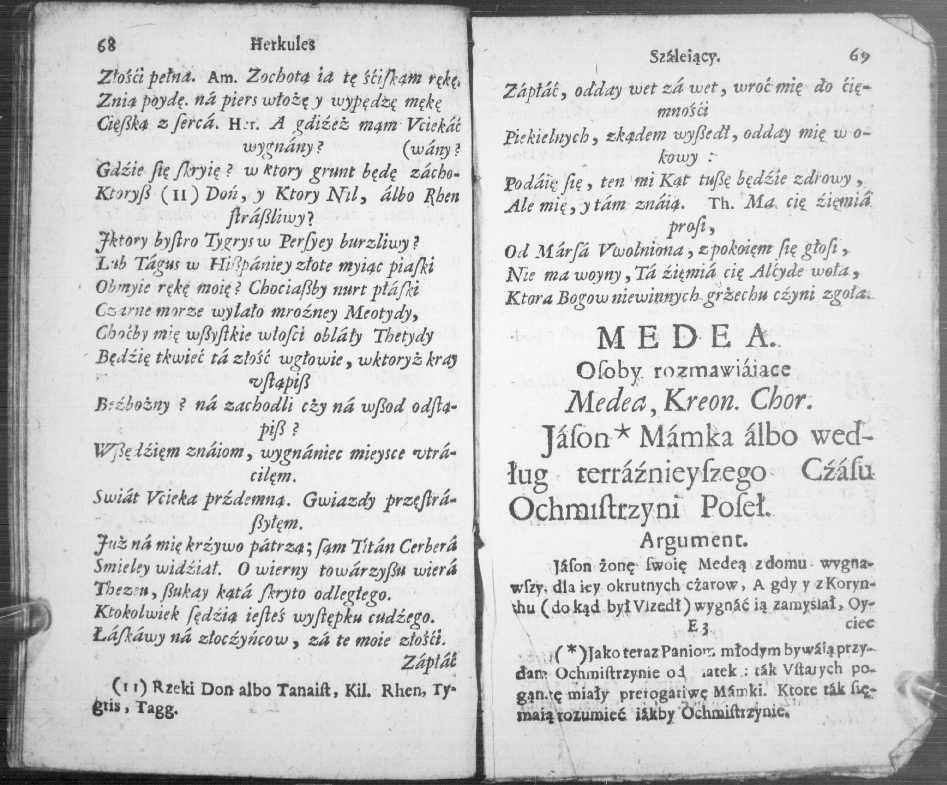 68 Herkules
Złośći pełna. Am. Zochotą ia tę śćiſkam rękę,
Znią poydę. ná piers włożę y wypędzę mękę
Cięßką z ſercá. Her. A gdźież mąm Vciekáć
wygnány? (wány?
Gdźie się ſkryię? w ktory grunt będę zácho-
Ktoryß (11) Doń, y Ktory Nil, álbo Rhen
ſtráßliwy?
Jktory byſtro Tygrys w Perſyey burzliwy?
Lub Tágus w Hißpániey złote myiąc piaſki
Obmyie rękę moię? Choćiaßby nurt płáſki
Czarne morze wylało mroźney Meotydy,
Choćby mię wßyſtkie włoſci obláły Thetydy
Będźię tkwieć tá złość wgłowie, wktoryż kray
vſtąpiß
Bezbożny? ná zachodli cży ná wßod odſtą-
piß?
Wßędźięm znáiom, wygnániec mieysce vtrá-
ciłęm.
Swiát Vcieka prźdemną. Gwiazdy przęſtrá-
ßyłęm.
Już ná mię krżywo pátrzą; ſąm Titán Cerberá
Smieley widźiał. O wierny towárzyßu wierá
Thezeu, ßukay kątá ſkryto odległego.
Ktokolwiek ſędźią ieſteś wyſtępku cudźego.
Łáſkáwy ná złoczyńcow, zá te moie złośći.
Zápłáć
(11) Rzeki Don albo Tanaiſt, Kil. Rhen, Ty-
gris, Tagg.
Száleiący. 69
Zápłáć, odday wet zá wet, wroć mię do ćię-
mnośći
Piekielnych, zkądem wyßedł, odday mię w o-
kowy:
Podáię ſię, ten mi Kąt tußę będźie zdrowy,
Ale mię, y tám znáią. Th. Ma cię źięmiá
proſi,
Od Mársá Vwolniona, z pokoięm ſię głoſi,
Nie ma woyny, Tá źięmiá cię Alcyde woła,
Ktora Bogow niewinnych grżechu cżyni zgoła.
MEDEA.
Oſoby rozmawiáiące
Medea, Kreon. Chor.
Jáſon * Mámka álbo wed-
ług terráźnieyſzego Cźáſu
Ochmiſtrzyni Poſeł.
Argument.
Jáſon żonę ſwoię Medeą z domu wygna-
wſzy, dla iey okrutnych cżarow, A gdy y z Koryn-
thu (do kąd był Vizedł) wygnáć ią zamyślał, Oy-
E3 ciec
(*) Jako teraz Paniom młodym bywáią przy-
dane Ochmiſtrzynie od : ták Vſtarych po-
gąntę miały prerogatiwę Mámki. Ktore ták ſię-
maią rozumieć iákby Ochmiſtrzynie.